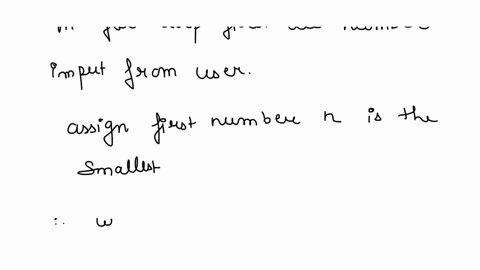 input from user.
assign first number n is the
smallest
∴ w